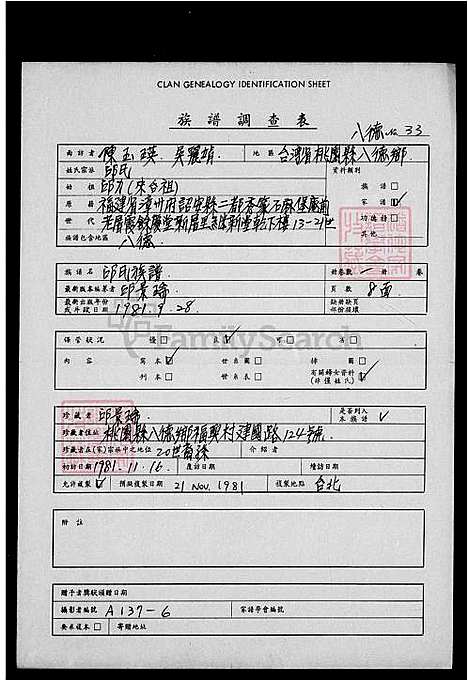 CLAN GENEALOGY IDENTIFICATION SHEET
族譜調查表
八德 No 33
面訪者 陳玉瑛 吳麗娟 地區 台灣省桃園縣八德鄉
姓氏宗派 邱氏 資料類別
始祖 邱 (來台祖) 族譜 □
原籍 福建省漳州府詔安縣二都 家譜 ☑
世代 13-21世 功德詩 □
族譜包含地區 八德 其他 □
族譜名 邱氏族譜 冊卷數 一 冊 卷
最新版本編纂者 邱景瑞 頁數 8面
最新出版年份或片段日期 1981.9.28 缺冊缺頁部份破壞
保管狀況 優 □ 良 ☑ 可 □ 劣 □
內容 寫本 ☑ 世系圖 □ 掃圖 □
刊本 □ 世系表 □ 有關婦女資料(非僅姓氏) □
FamilySearch
珍藏者 邱景瑞 是否列入本族譜 ✓
珍藏者住址 桃園縣八德鄉福興村建國路124號
珍藏者在(家)宗族中之地位 20世裔孫 介紹者
初訪日期 1981.11.16. 覆訪日期 續訪日期
允許複製 ☑ 預擬複製日期 21 NOV. 1981 複製地點 台北
附註
贈予者獎狀頒贈日期
攝影者編號 A137-6 家譜學會編號
要求複本 □ 寄贈地址